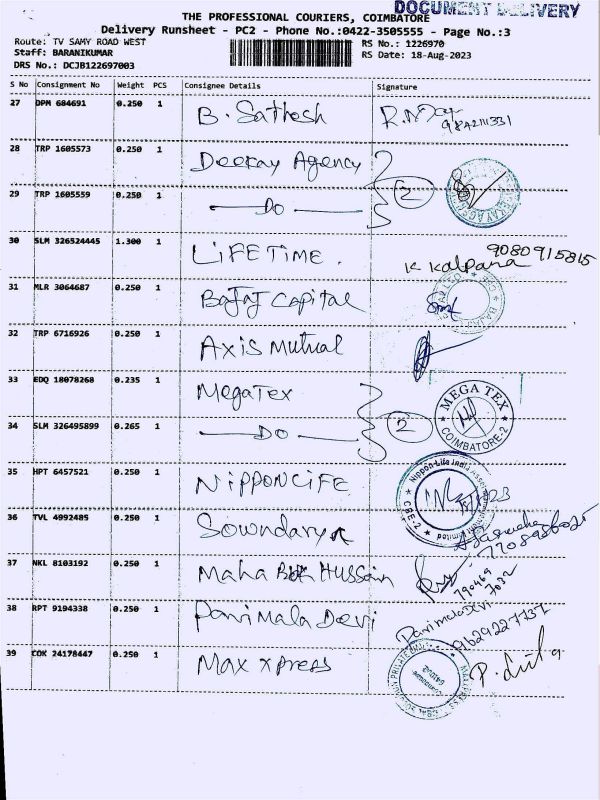 DOCUMENT DELIVERY
THE PROFESSIONAL COURIERS, COIMBATORE
Delivery Runsheet - PC2 - Phone No.:0422-3505555 - Page No.:3
Route: TV SAMY ROAD WEST
RS No.: 1226970
Staff: BARANIKUMAR
RS Date: 18-Aug-2023
DRS No.: DCJB122697003
S No Consignment No Weight PCS Consignee Details Signature
27 DPM 684691 0.250 1 B. Sathesh
28 TRP 1605573 0.250 1 Deekay Agency
2
29 TRP 1605559 0.250 1 — Do —
30 SLM 326524445 1.300 1 LIFETIME. K Kalpana 9080915815
31 MLR 3064687 0.250 1 Bajaj Capital
32 TRP 6716926 0.250 1 Axis Mutual
33 EDQ 18078268 0.235 1 MegaTex MEGA TEX
2 COIMBATORE-2
34 SLM 326495899 0.265 1 — Do —
35 HPT 6457521 0.250 1 NIPPONLIFE
Nippon Life India CBE-2 Limited
36 TVL 4992485 0.250 1 Sowndarya
37 NKL 8103192 0.250 1 Maha Hussain
38 RPT 9194338 0.250 1 Parimala Devi Parimala Devi
39 COK 24178447 0.250 1 Max Xpress